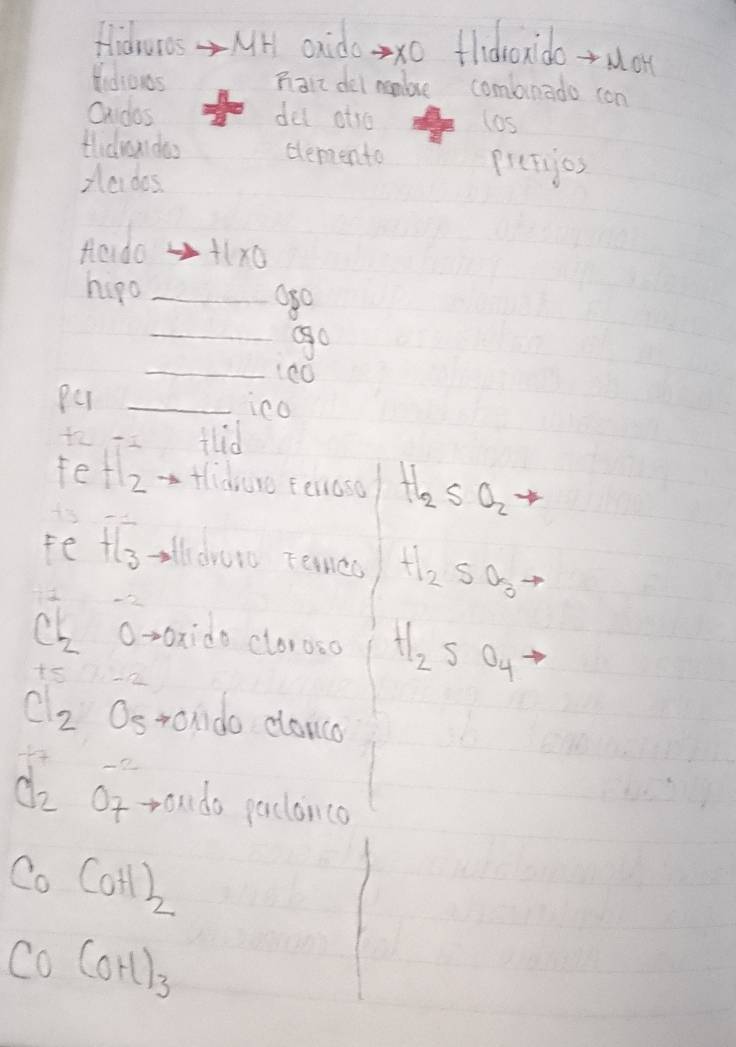 Hidruros → MH oxido → XO Hidroxido → MOH
Hidruros Raiz del nombre combinado con
Oxidos + del otro + los
Hidroxidos elemento prefijos
Acidos
Acido → HXO
hipo ______ oso
______ oso
______ ico
per ______ ico
+2 -1 Hid
FeH2 → Hidruro Ferroso H2SO2 →
+3 -1
FeH3 → Hidruro Ferrico H2SO3 →
-2
Cl2 O → oxido cloroso H2SO4 →
+5 -2
Cl2 O5 → oxido clorico
+7 -2
Cl2 O7 → oxido perclorico
Co (OH)2
Co (OH)3